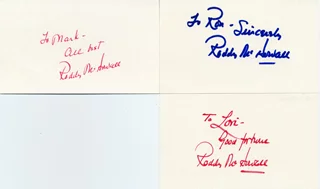 To Mark -
All best
Roddy McDowall
To Ron -
Sincerely
Roddy McDowall
To Lori -
Good fortune
Roddy McDowall